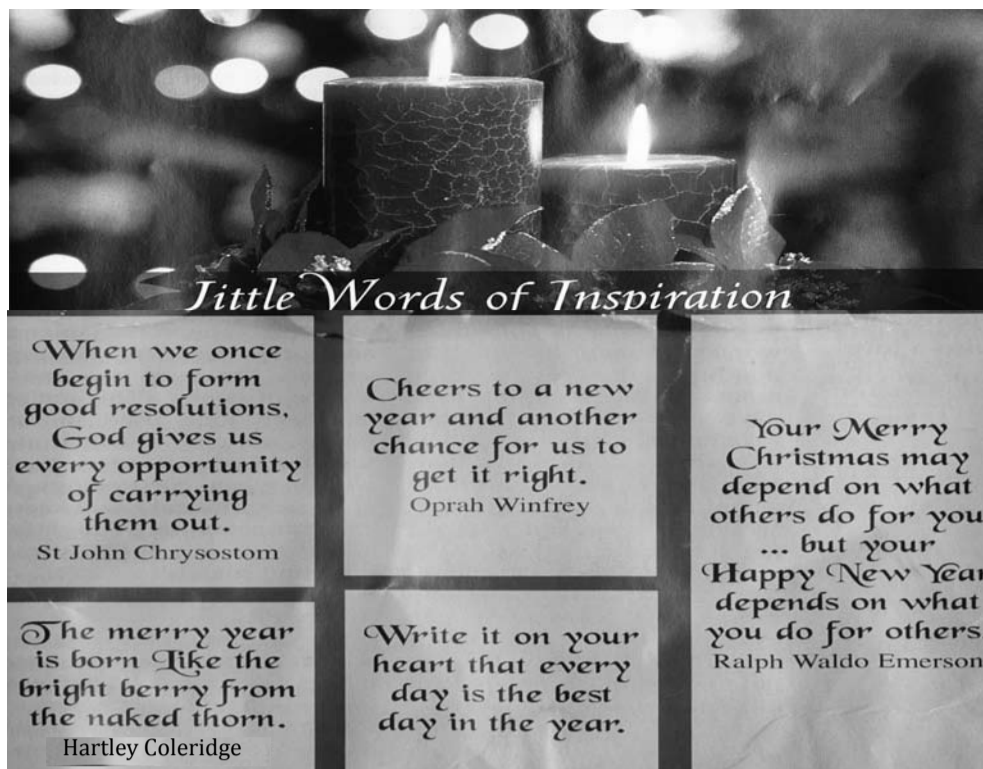 Little Words of Inspiration
When we once
begin to form
good resolutions,
God gives us
every opportunity
of carrying
them out.
St John Chrysostom
The merry year
is born Like the
bright berry from
the naked thorn.
Hartley Coleridge
Cheers to a new
year and another
chance for us to
get it right.
Oprah Winfrey
Write it on your
heart that every
day is the best
day in the year.
Your Merry
Christmas may
depend on what
others do for you
... but your
Happy New Year
depends on what
you do for others
Ralph Waldo Emerson